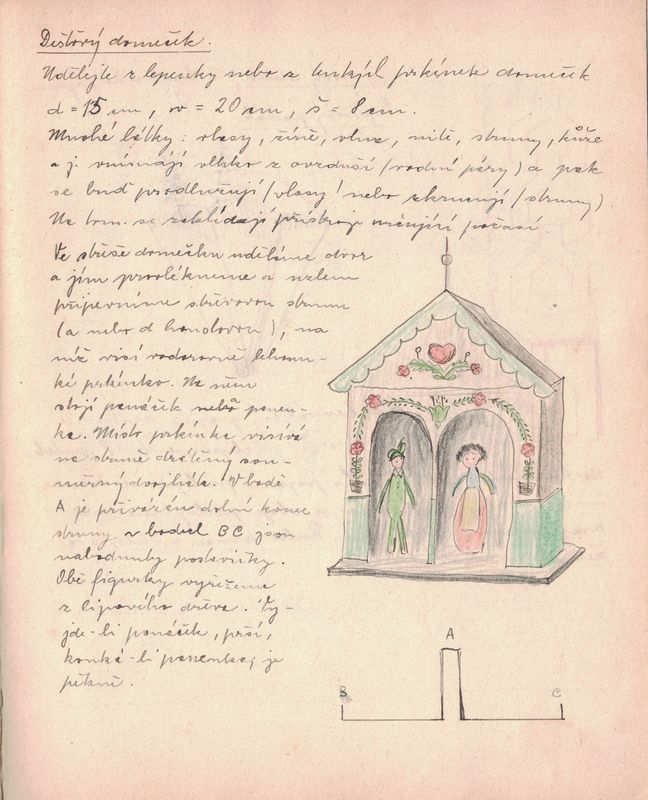 Dešťový domeček.
Udělejte z lepenky nebo z tenkých prkének domeček
d = 15 cm, v = 20 cm, š = 8 cm.
Mnohé látky: vlasy, žíně, vlna, nitě, struny, kůže
a j. vnímají vlhko z ovzduší (vodní páry) a pak
se buď prodlužují (vlasy) nebo zkrucují (struny).
Na tom se zakládají přístroje určující počasí.
Ve střeše domečku uděláme otvor
a jím provlékneme a uzlem
připevníme střevovou strunu
(a nebo d houslovou), na
níž visí vodorovně lehoun-
ké prkénko. Na něm
stojí panáček nebo a panen-
ka. Místo prkénka visívá
na struně drátěný sou-
měrný dvojhák. V bodě
A je přivázán dolní konec
struny v bodech BC jsou
nabodnuty postavičky.
Obě figurky vyřežeme
z lipového dřeva. Vy-
jde-li panáček, prší,
kouká-li panenka, je
pěkně.
A
B
C